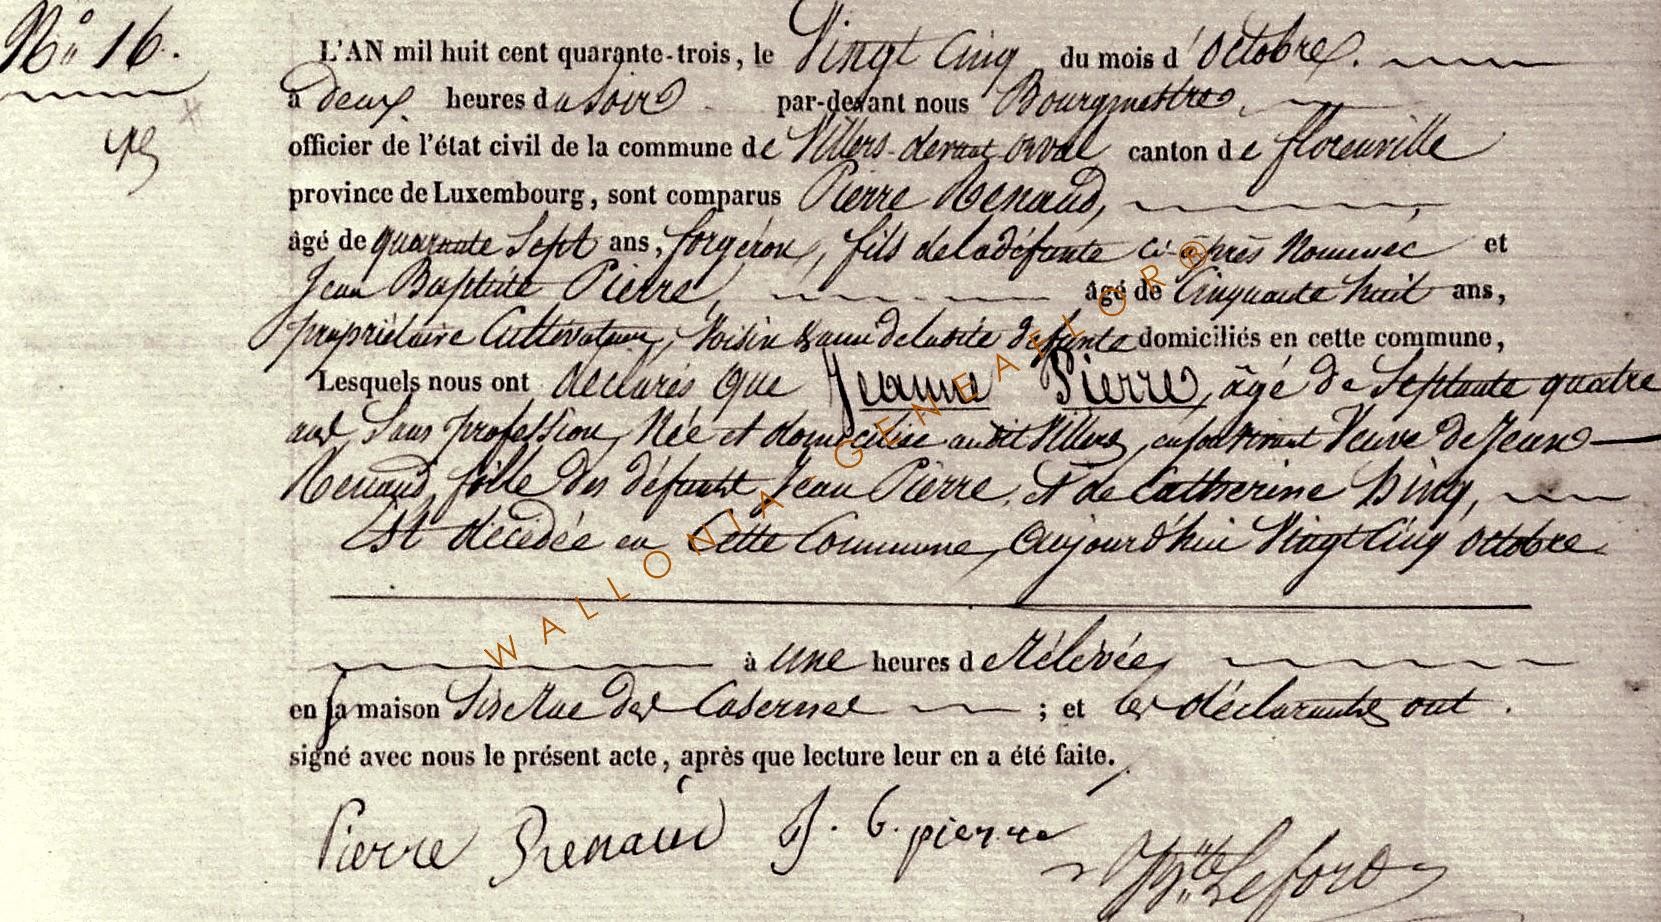 N° 16.
L'AN mil huit cent quarante-trois, le Vingt Cinq du mois d'Octobre.
à deux heures du Soir par-devant nous Bourgmestre,
officier de l'état civil de la commune de Villers-devant orval canton de florenville
province de Luxembourg, sont comparus Pierre Renaud,
âgé de quarante Sept ans, forgéron, fils de la défunte ci-après Nommée et
Jean Baptiste Pierre, âgé de Cinquante huit ans,
propriétaire Cultivateur, Voisin & ami de la dite défunte domiciliés en cette commune,
Lesquels nous ont déclarés Que Jeanne Pierre, âgé de Septante quatre
ans, Sans profession, Née et domiciliée audit Villers, en son vivant Veuve de Jean
Renaud, fille des défunts Jean Pierre, et de Catherine
Est décédée en Cette Commune, Aujourd'hui Vingt Cinq octobre
à une heures de rélévée,
en sa maison Sise Rue des Casernes ; et les déclarants ont
signé avec nous le présent acte, après que lecture leur en a été faite.
Pierre Renaud J. b. pierre Lefort
WALLONIA GENEALLOR®